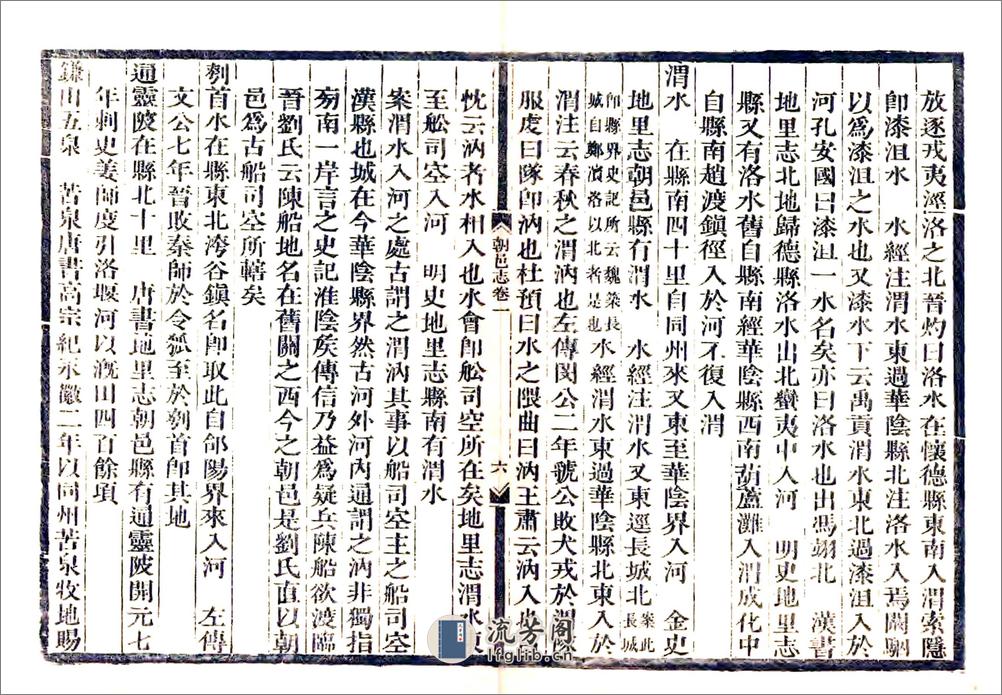 放逐戎夷涇洛之北晉灼曰洛水在懷德縣東南入渭索隱
卽漆沮水　水經注渭水東過華陰縣北注洛水入焉闞駰
以爲漆沮之水也又漆水下云禹貢渭水東北過漆沮入於
河孔安國曰漆沮一水名矣亦曰洛水也出馮翊北　漢書
地里志北地歸德縣洛水出北蠻夷中入河　明史地里志
縣又有洛水舊自縣南經華陰縣西南葫蘆灘入渭成化中
自縣南趙渡鎭徑入於河不復入渭
渭水　在縣南四十里自同州來又東至華陰界入河　金史
地里志朝邑縣有渭水　水經注渭水又東逕長城北案此長城
卽縣界史記所云魏築長城自鄭濱洛以北者是也　水經渭水東過華陰縣北東入於
渭注云春秋之渭汭也左傳閔公二年虢公敗犬戎於渭隊
服虔曰隊卽汭也杜預曰水之隈曲曰汭王肅云汭入也
朝邑志卷一
六
忱云汭者水相入也水會卽船司空所在矣地里志渭水東
至船司空入河　明史地里志縣南有渭水
案渭水入河之處古謂之渭汭其事以船司空主之船司空
漢縣也城在今華陰縣界然古河外河內通謂之汭非獨指
芴南一岸言之史記淮陰矦傳信乃益爲疑兵陳船欲渡臨
晉劉氏云陳船地名在舊關之西今之朝邑是劉氏直以朝
邑爲古船司空所轄矣
刳首水在縣東北洿谷鎭名卽取此自郃陽界來入河　左傳
文公七年晉敗秦師於令狐至於刳首卽其地
通靈陂在縣北十里　唐書地里志朝邑縣有通靈陂開元七
年刺史姜師度引洛堰河以漑田四百餘項
鎌山五泉　苦泉唐書高宗紀永徽二年以同州苦泉牧地賜
流芳阁
lfglib.cn